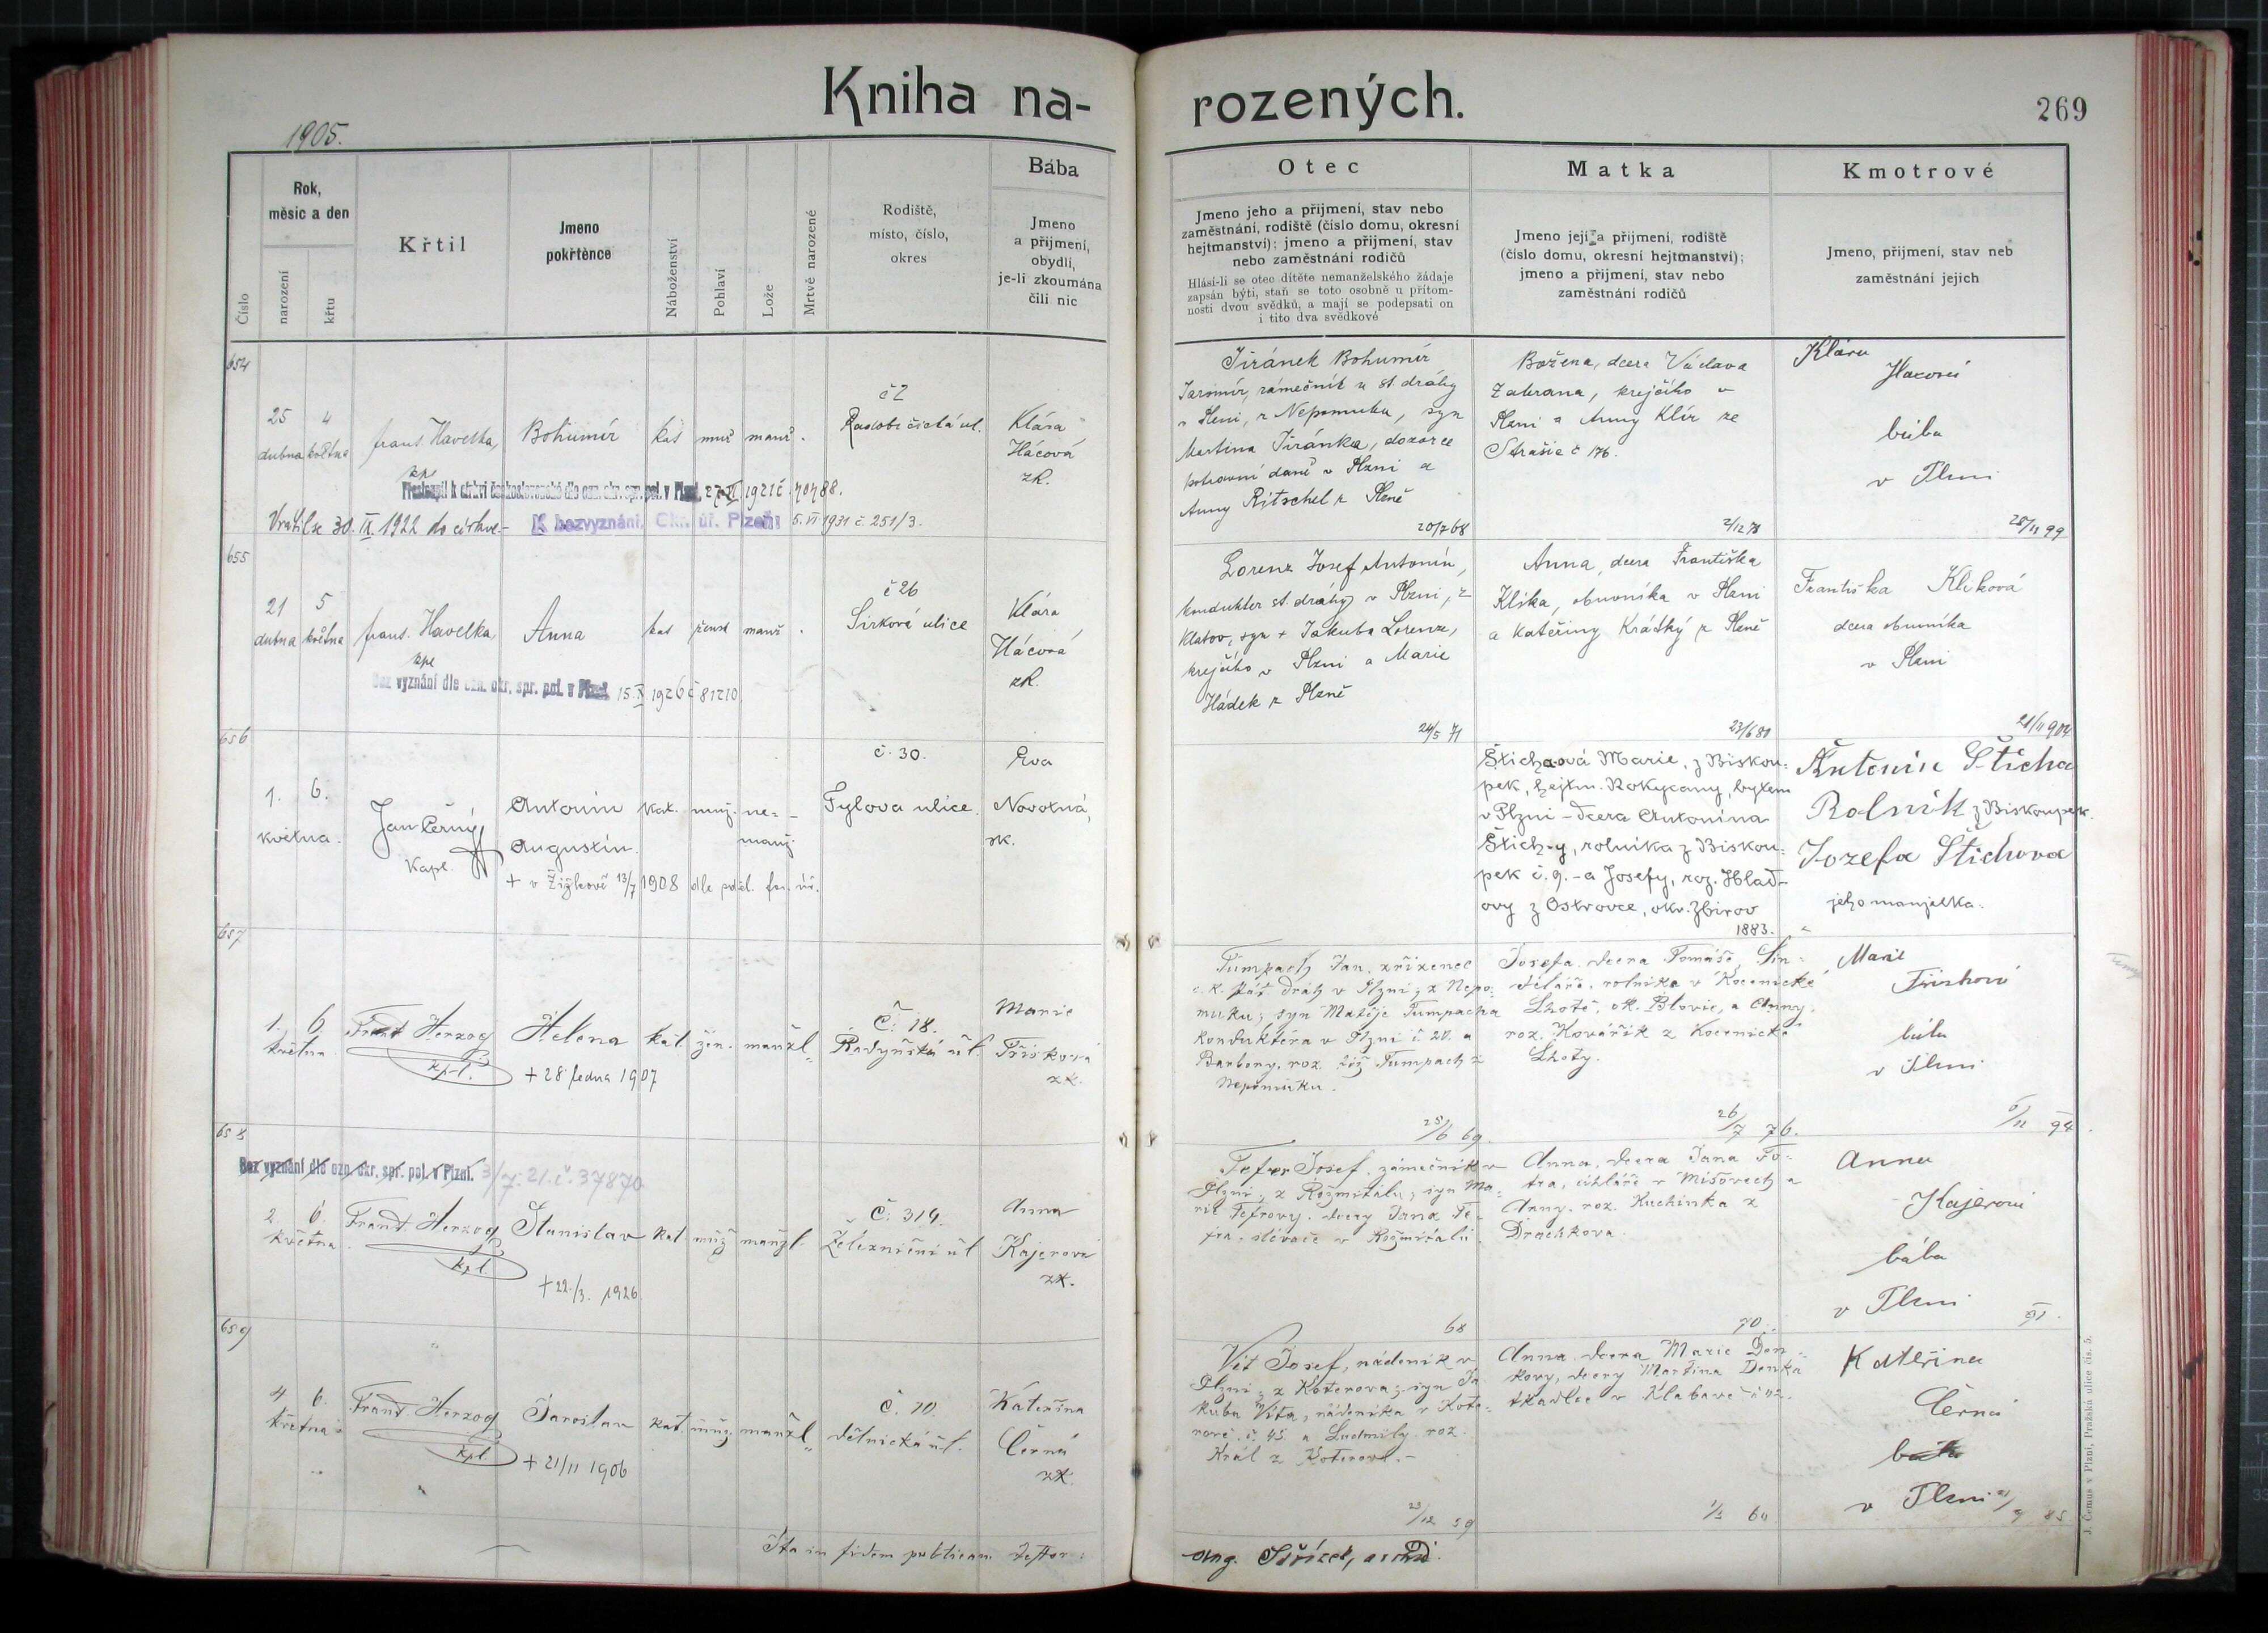 Kniha na-
rozených.
269
1905.
Číslo
Rok,
měsíc a den
narození
křtu
Křtil
Jmeno
pokřtěnce
Náboženství
Pohlaví
Lože
Mrtvě narozené
Rodiště,
místo, číslo,
okres
Bába
Jmeno
a přijmení,
obydlí,
je-li zkoumána
čili nic
Otec
Jmeno jeho a přijmení, stav nebo
zaměstnání, rodiště (číslo domu, okresní
hejtmanství); jmeno a přijmení, stav
nebo zaměstnání rodičů
Hlásí-li se otec dítěte nemanželského žádaje
zapsán býti, staň se toto osobně u přítom-
nosti dvou svědků, a mají se podepsati on
i tito dva svědkové
Matka
Jmeno její a přijmení, rodiště
(číslo domu, okresní hejtmanství);
jmeno a přijmení, stav nebo
zaměstnání rodičů
Kmotrové
Jmeno, přijmení, stav neb
zaměstnání jejich
654
25
dubna
4
května
frant. Havelka,
kpl
Bohumír
kat
muž
manž.
č 2
Radobičická ul.
Klára
Hácová
zk.
27 VI 1921 č. 70788.
Vrátil se 30. IX. 1922 do církve
K bezvyznání. Okr. úř. Plzeň
5. VI 1931 č. 251/3.
Jiránek Bohumír
Jaromír, zámečník u st. dráhy
v Plzni, z Nepomuku, syn
Martina Jiránka, dozorce
potravní daně v Plzni a
Anny Ritschel z Plzně
20/7 68
Božena, dcera Václava
Zabrana, krejčího v
Plzni a Anny Klír ze
Strašic č 176.
2/12 78
Klára
Hacová
bába
v Plzni
28/11 99
655
21
dubna
5
května
frant. Havelka
kpl
Anna
kat
žensk
manž
č 26
Sirková ulice
Klára
Hácová
zk.
Bez vyznání dle ozn. okr. spr. pol. v Plzni 15. X 1926 č 81210
Lorenz Josef Antonín,
konduktér st. dráhy v Plzni, z
Klatov, syn + Jakuba Lorenz,
krejčího v Plzni a Marie
Hádek z Plzně
24/5 71
Anna, dcera Františka
Klika, obuvníka v Plzni
a Kateřiny Krátký z Plzně
23/6 80
Františka Kliková
dcera obuvníka
v Plzni
21/11 904
656
1.
6.
května.
Jan Černý
Kapl.
Antonín
Augustin.
kat.
muž.
ne-
manž.
č. 30.
Tylova ulice
Eva
Novotná,
zk.
+ v Žižkově 13/7 1908 dle poděl. far. úř.
Štichová Marie, z Biskou-
pek, hejtm. Rokycany, bytem
v Plzni - dcera Antonína
Štichy, rolníka z Biskou-
pek č. 9. - a Josefy, roz. Hlad-
ovy z Ostrovce, okr. Zbirov
1883.
Antonín Šticha
Rolník z Biskoupek.
Jozefa Štichova
jeho manželka.
657
1.
6.
května
Frant Herzog
kpl.
Helena
kat.
žen.
manžl.
+ 28. ledna 1907
Č. 18.
Radyňská ul.
Marie
Tříšková
zk.
Tumpach Jan, zřízenec
c. k. stát. drah v Plzni; z Nepo-
muku; syn Matěje Tumpacha
konduktéra v Plzni č. 20. a
Barbory, roz. též Tumpach z
Nepomuku.
25/6 69.
Josefa, dcera Tomáše Sin-
deláře, rolníka v Kocenické
Lhotě, ok. Blovic, a Anny,
roz. Kovářík z Kocenické
Lhoty.
26/7 76.
Marie
Tříšková
bába
v Plzni
6/11 94.
658
Bez vyznání dle ozn. okr. spr. pol. v Plzni. 3/7. 21. č. 37870
2.
6.
května
Frant. Herzog
kpl.
Stanislav
kat
muž
manžl.
+ 22./3. 1926.
Č. 314.
Železniční ul
Anna
Kajerová
zk.
Fefer Josef, zámečník v
Plzni, z Rožmitálu; syn Ma-
rie Fefrovy, dcery Jana Fe-
fra, slévače v Rožmitálu.
68
Anna, dcera Jana Fo-
tra, cihláře v Mišovech a
Anny, roz. Kuchinka z
Drachkova.
70.
Anna
Kajerová
bába
v Plzni
91.
659
4
6.
května
Frant. Herzog
kpl.
Jaroslav
kat
muž
manžl.
+ 21/11 1906
č. 10.
dělnická ul.
Kateřina
Černá
zk.
Vít Josef, nádeník v
Plzni, z Koterova; syn Ja-
kuba Víta, nádeníka v Kote-
rově, č. 45. a Ludmily roz.
Král z Koterova. -
23/12 59
Anna, dcera Marie Den-
kovy, dcery Martina Denka
tkadlce v Klabavě č 42.
1/3 60
Kateřina
Černá
bába
v Plzni
85
Ita in fidem publicam testor:
J. Čemus v Plzni, Pražská ulice čís. 5.